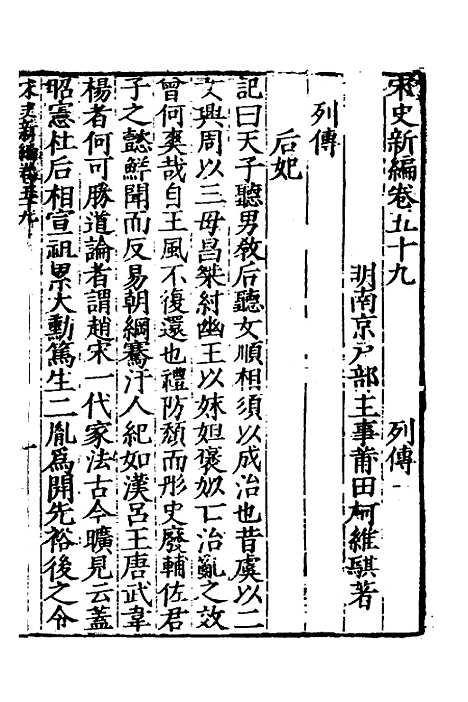 宋史新編卷五十九 列傳一
明南京戶部主事莆田柯維騏著
列傳
后妃
記曰天子聽男敎后聽女順相須以成治也昔虞以二
女興周以三母昌桀紂幽王以妺妲褒姒亡治亂之效
曾何爽哉自王風不復還也禮防頹而彤史廢輔佐君
子之懿鮮聞而反易朝綱騫汙人紀如漢呂王唐武韋
楊者何可勝道論者謂趙宋一代家法古今曠見云蓋
昭憲杜后相宣祖累大勳篤生二胤爲開先裕後之令
宋史新編卷五十九 一